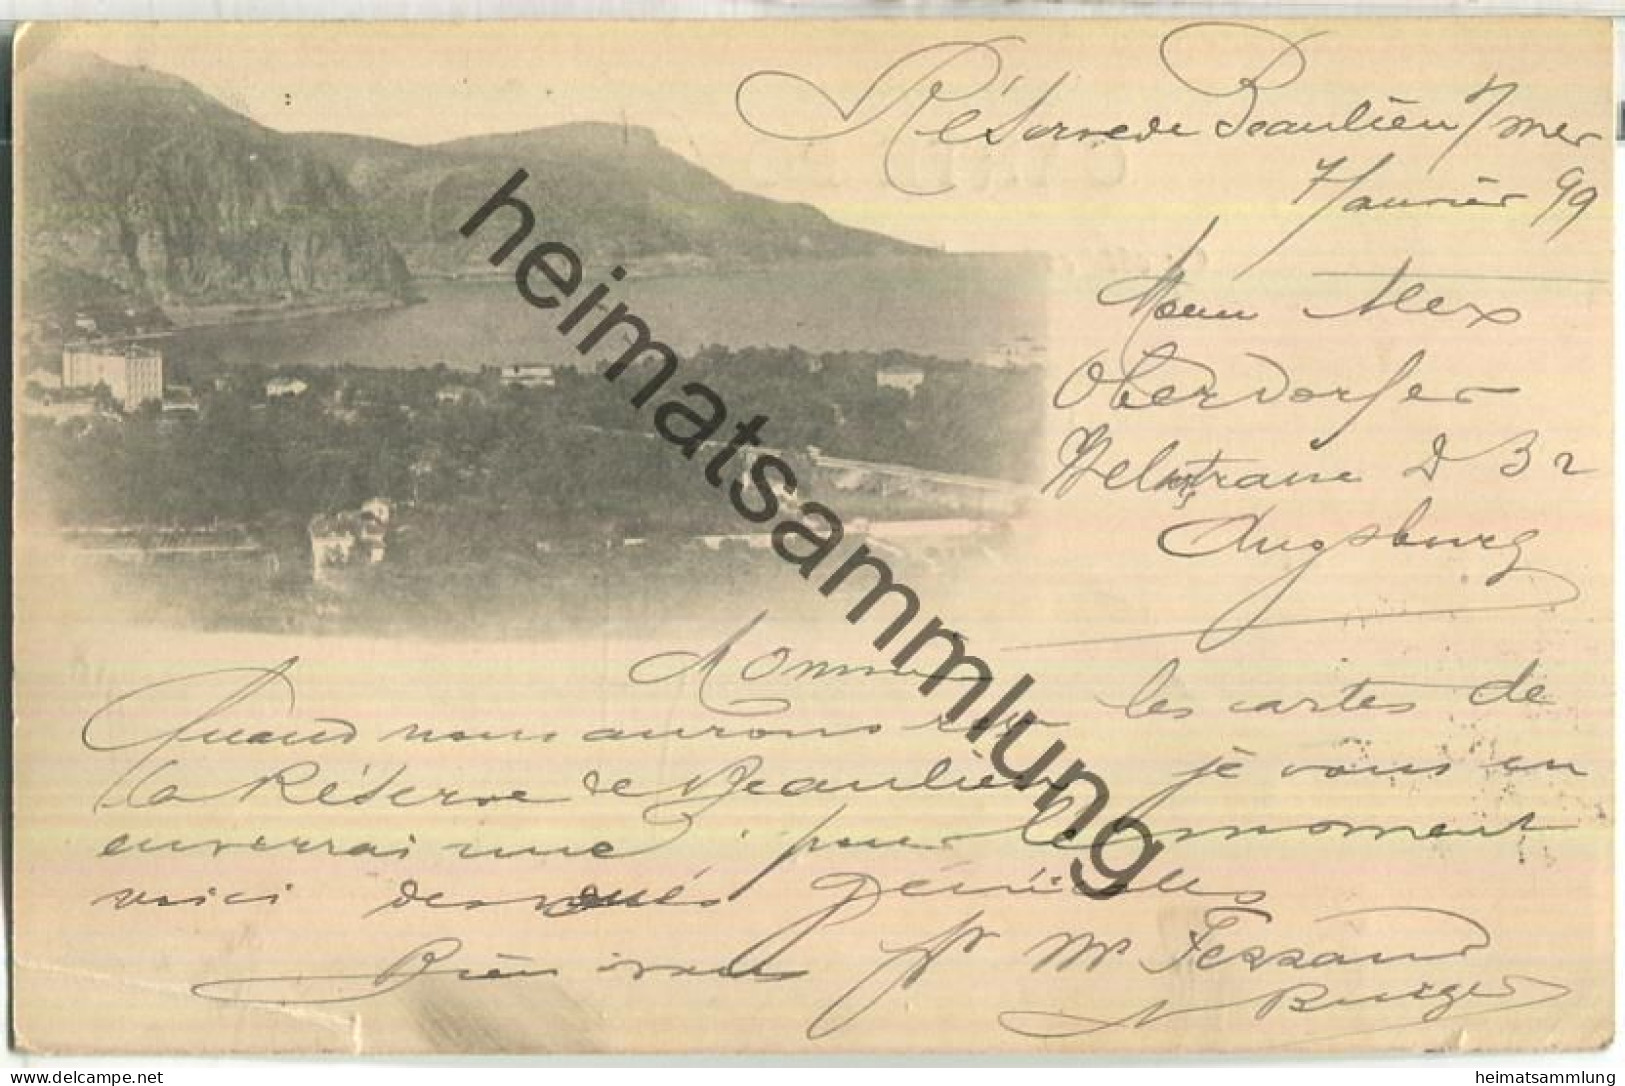 Réserve de Beaulieu s/mer
7 Janvier 99
Alex
Oberdorfer
D 32
Augsburg
Monsieur
Quand nous aurons reçu les cartes de
la Réserve de Beaulieu je vous en
enverrai une, pour le moment
voici des vues générales
Bien à vous pr Mr Feraud
N Burger
heimatsammlung
delcampe.net
heimatsammlung